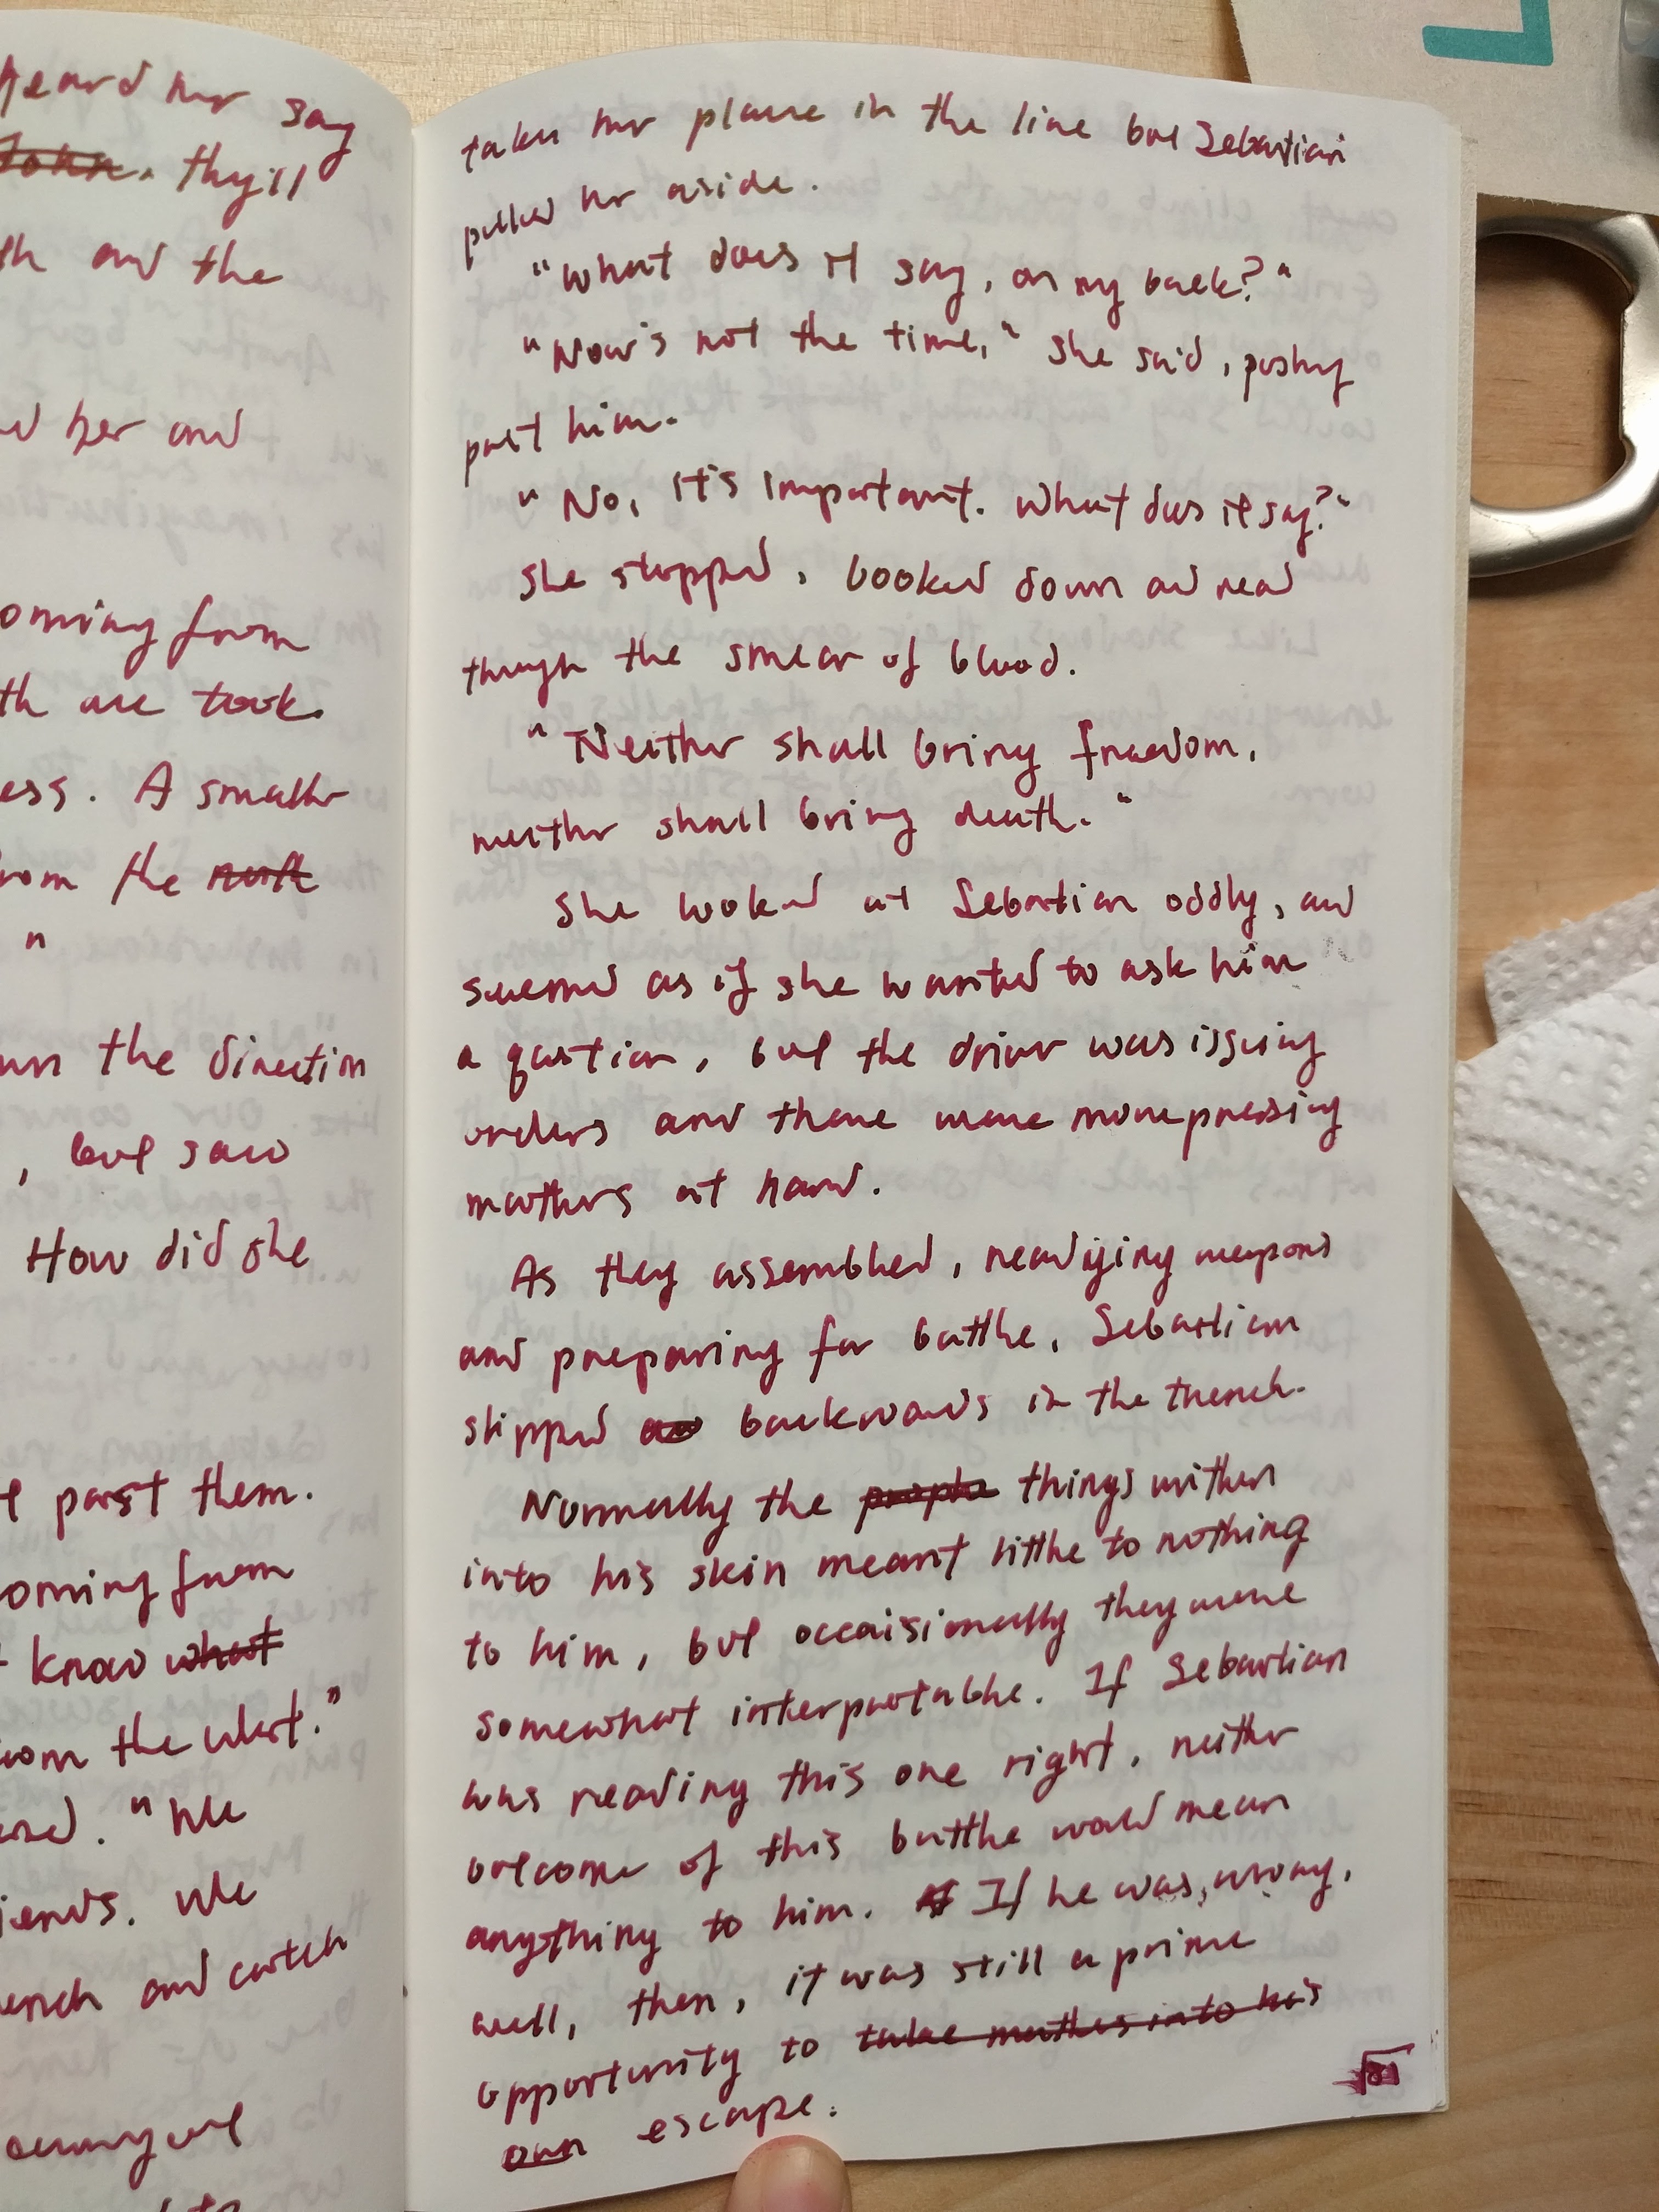 heard her say
John. they'll
th and the
her and
oming from
th are took.
ess. A smaller
rom the
"
the direction
, but saw
How did she
past them.
oming from
know what
rom the west."
. "We
iends. We
ench and catch
taken her place in the line but Sebastian
pulled her aside.
"What does it say, on my back?"
"Now's not the time," she said, pushing
past him.
"No, it's important. What does it say?"
She stopped, looked down and read
through the smear of blood.
"Neither shall bring freedom,
neither shall bring death."
She looked at Sebastian oddly, and
seemed as if she wanted to ask him
a question, but the driver was issuing
orders and there were more pressing
matters at hand.
As they assembled, readying weapons
and preparing for battle, Sebastian
slipped backwards in the trench.
Normally the people things written
into his skin meant little to nothing
to him, but occaisionally they were
somewhat interpretable. If Sebastian
was reading this one right, neither
outcome of this battle would mean
anything to him. If he was wrong,
well, then, it was still a prime
opportunity to take matters into his
own escape.